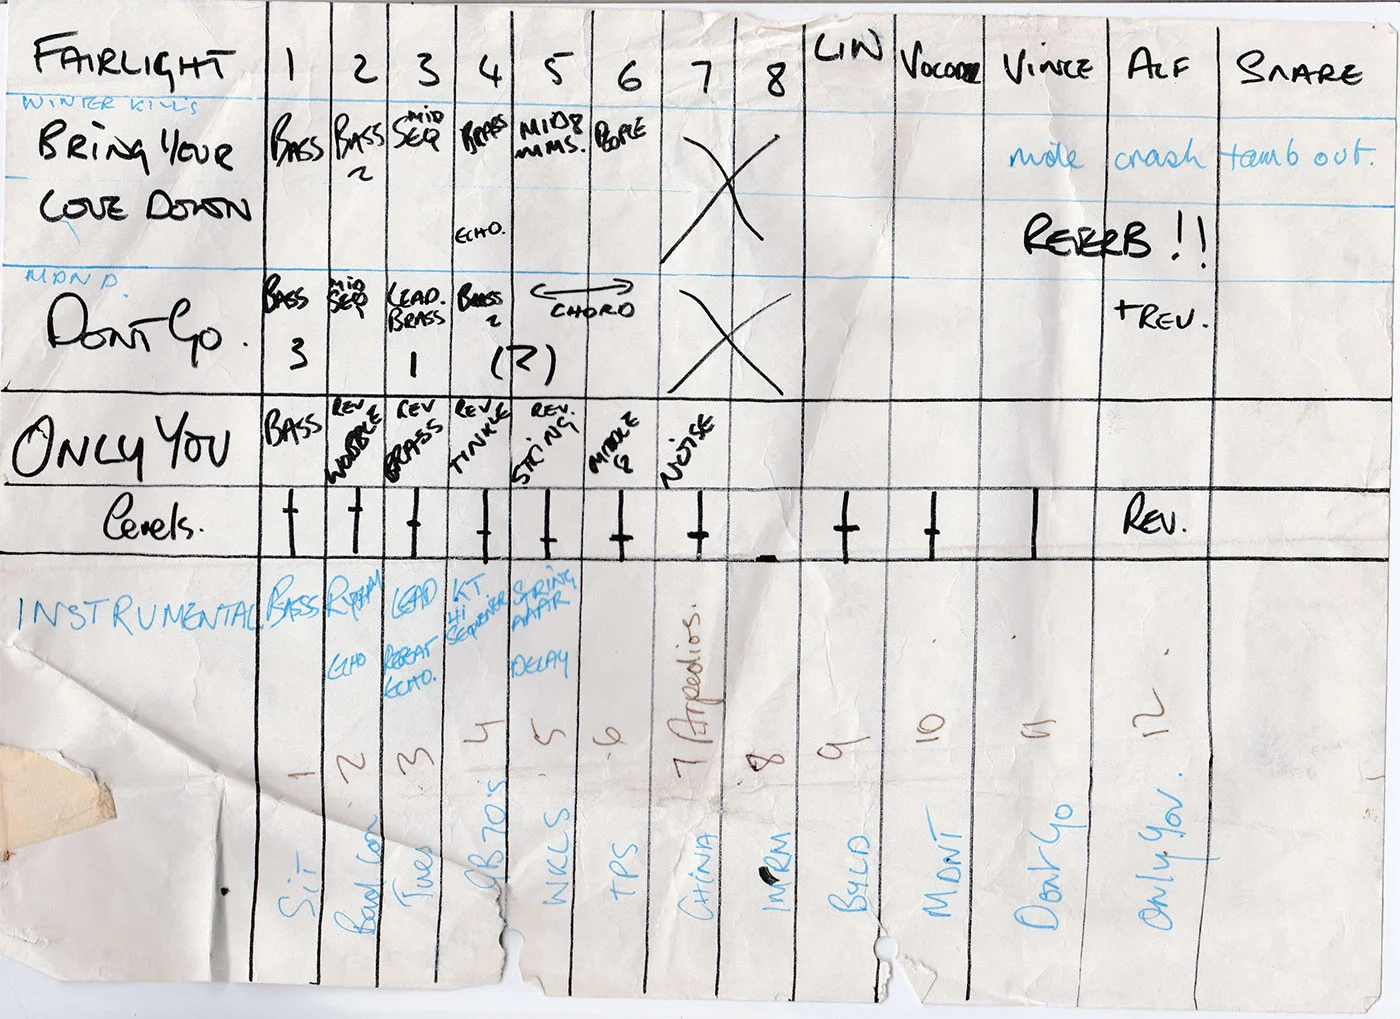 FAIRLIGHT 1 2 3 4 5 6 7 8 LIN VOCODER VINCE ALF SNARE
WINTER KILLS
BRING YOUR LOVE DOWN BASS BASS 2 MID SEQ BRASS ECHO. MID 8 PEOPLE
mute crash tamb out.
REVERB!!
DONT GO. BASS 3 MID SEQ LEAD. BRASS 1 BRASS 2 (2) CHORD +REV.
ONLY YOU BASS REV WOBBLE REV BRASS REV. TINKLE REV. STRING MIDDLE 8 NOISE
Levels. REV.
INSTRUMENTAL BASS ECHO LEAD REPEAT ECHO. HI SEQUENCER STRING AAAR DELAY
1 2 3 4 5 6 7 Arpedios. 8 9 10 11 12
SIT
Tues
WKLS
TPS
CHINA
BYLD
MDNT
Dont Go
Only You.